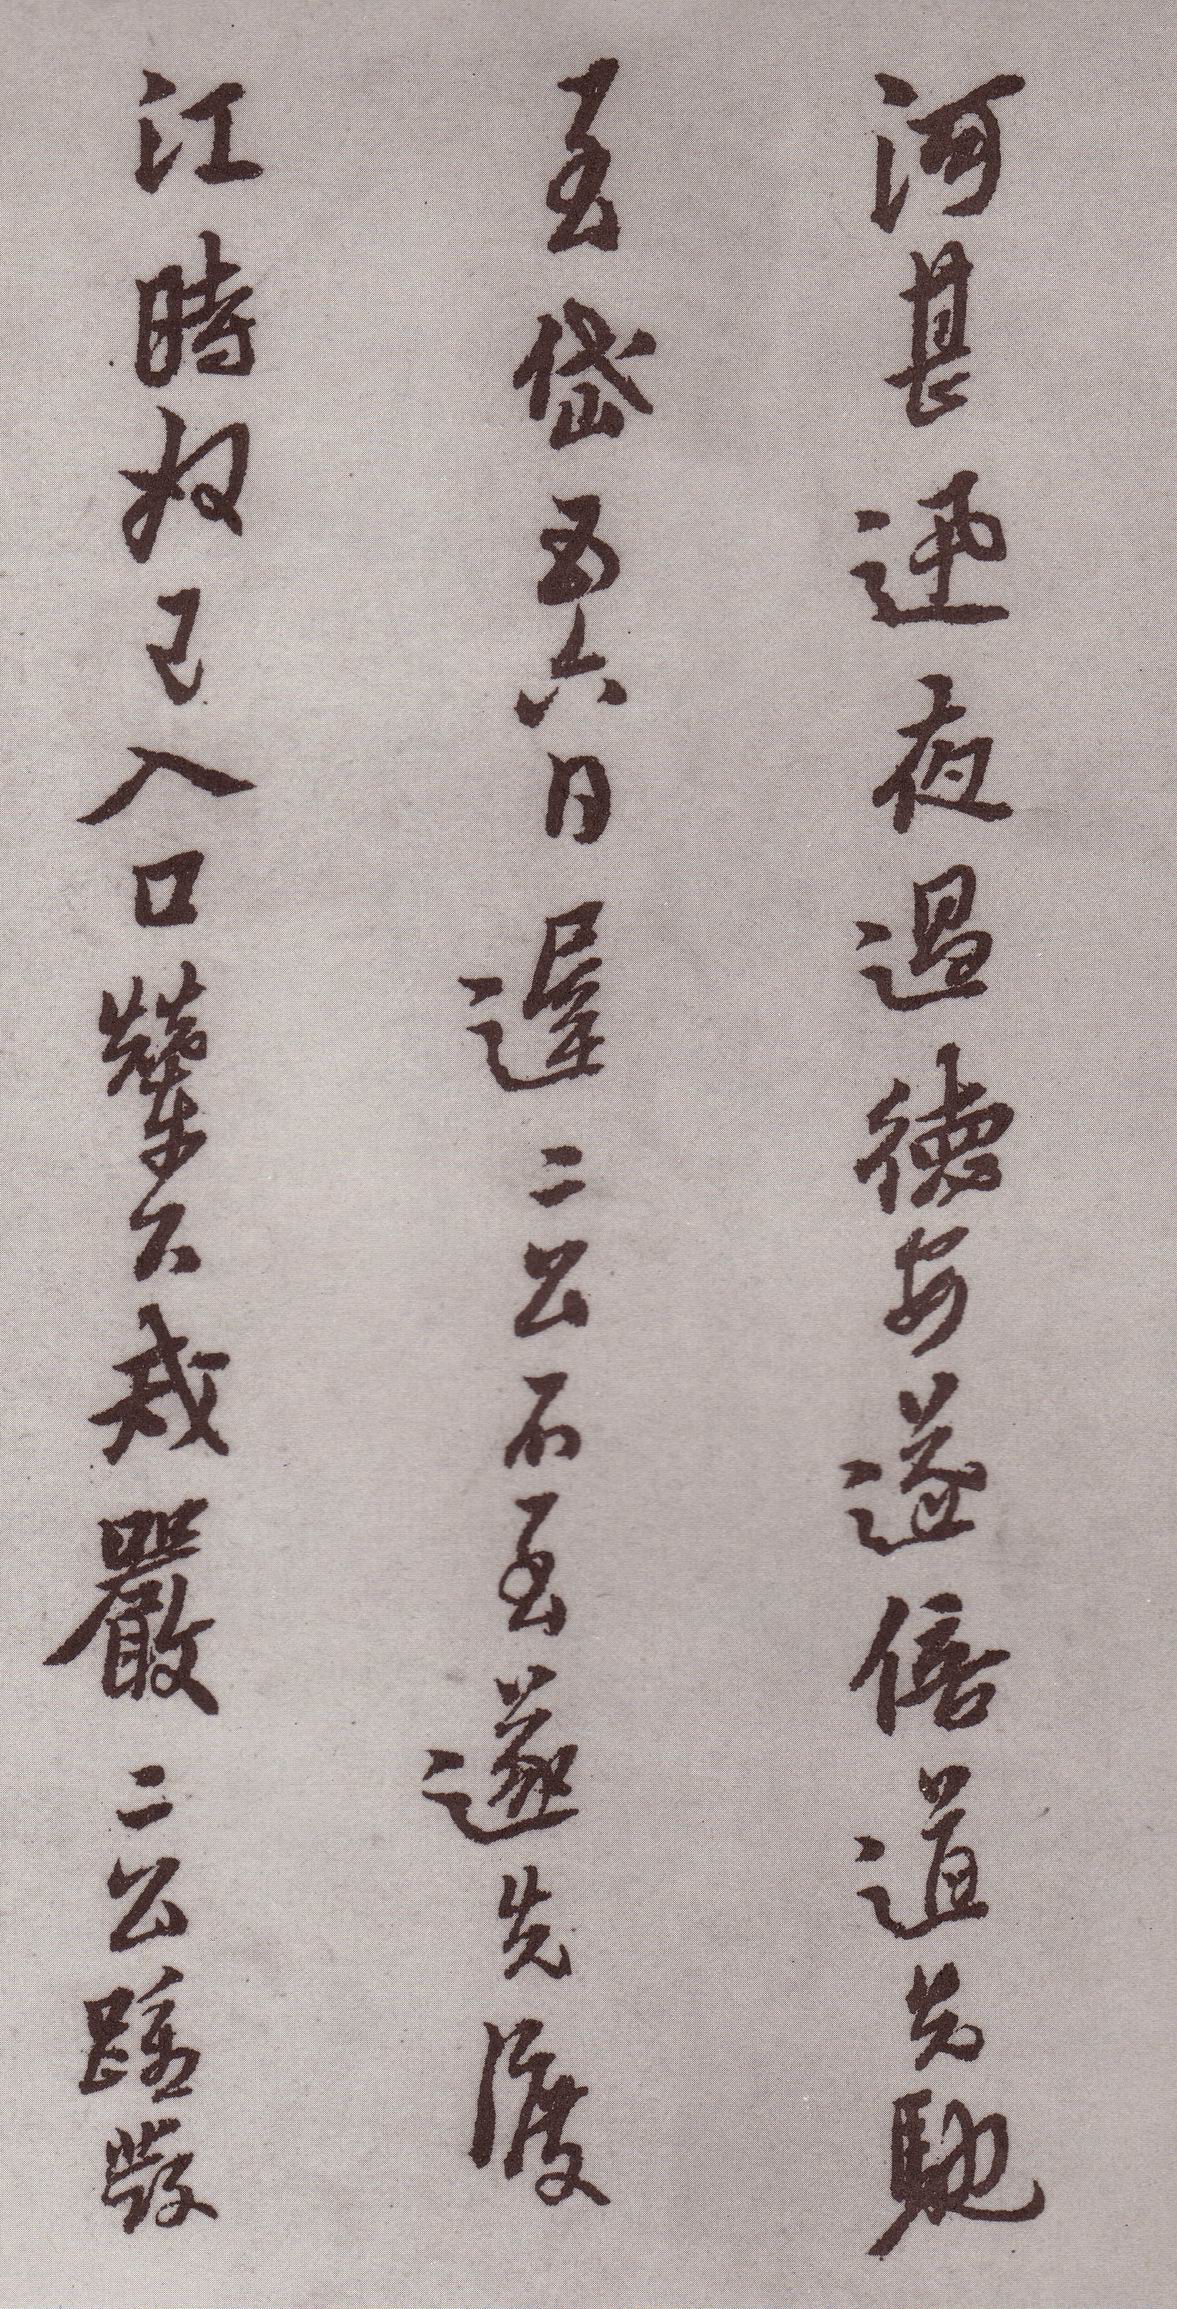 河甚迅夜過德安遂倍道先馳
至岱五六日遲二公不至遂先渡
江時奴已入口輦下戒嚴二公踵發